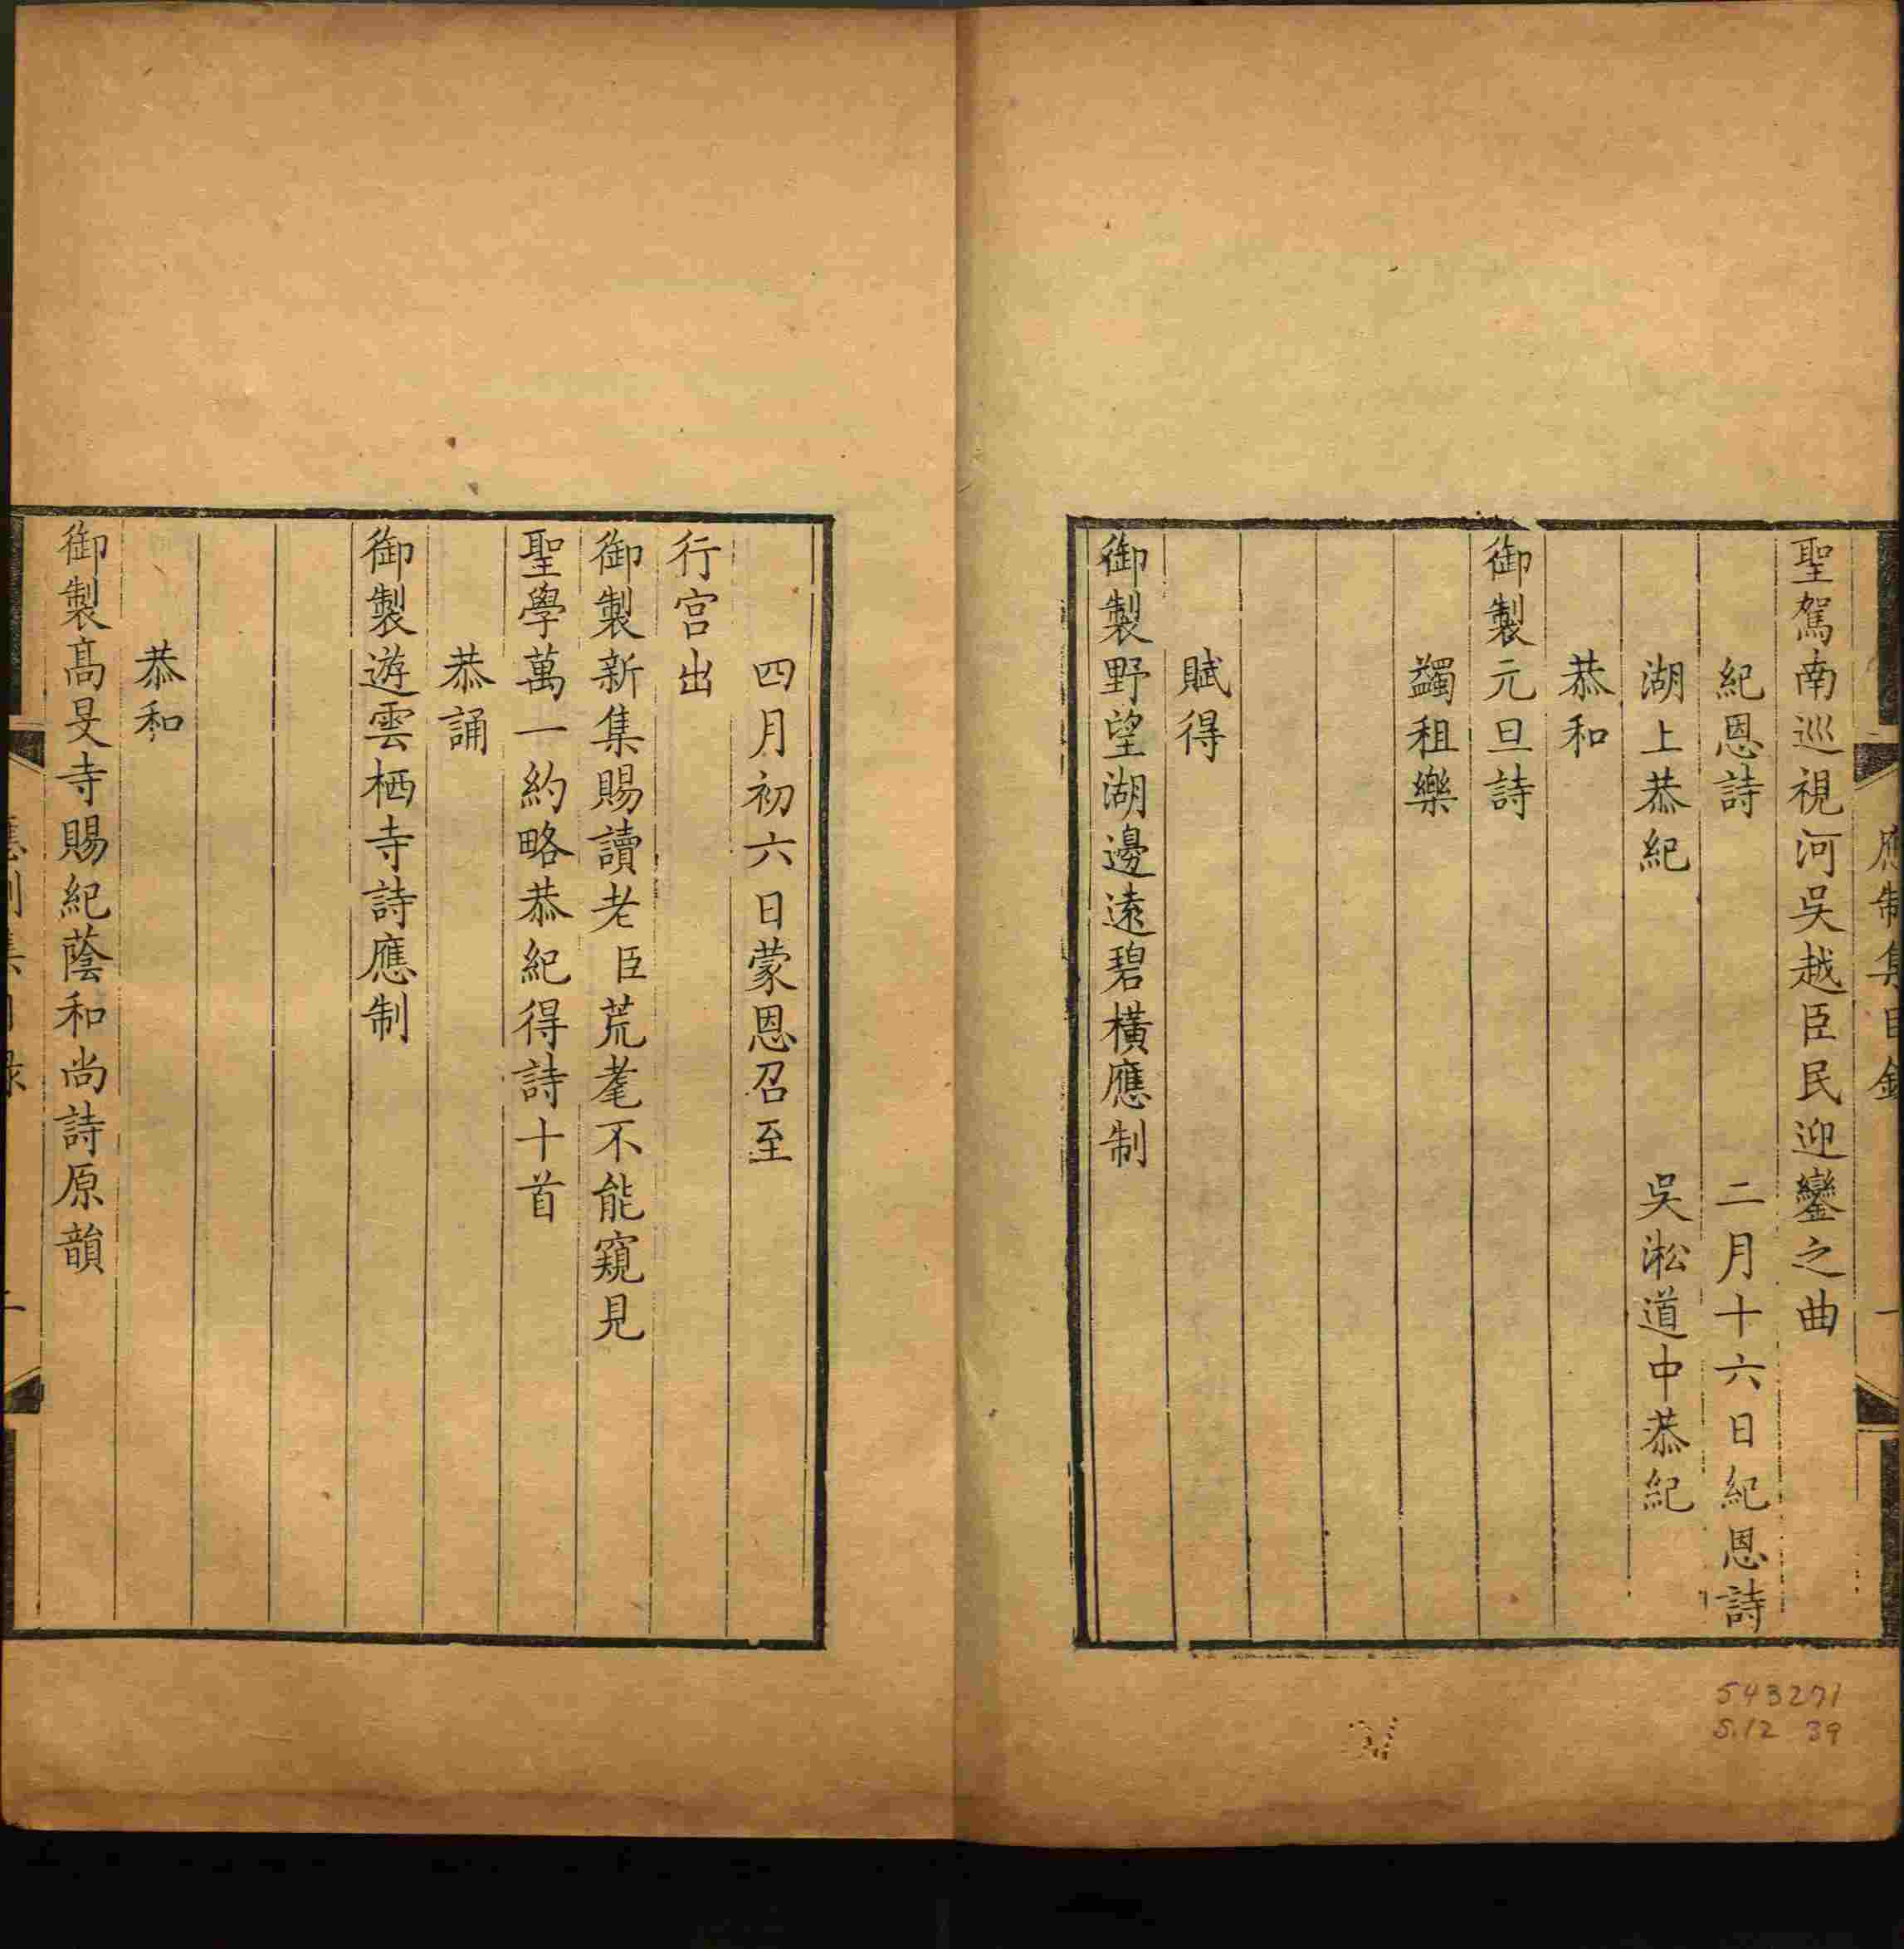 應制集目錄 一
聖駕南巡視河吳越臣民迎鑾之曲
紀恩詩 二月十六日紀恩詩
湖上恭紀 吳淞道中恭紀
恭和
御製元旦詩
蠲租樂
賦得
御製野望湖邊遠碧橫應制
543271
5.12 39
四月初六日蒙恩召至
行宮出
御製新集賜讀老臣荒耄不能窺見
聖學萬一約略恭紀得詩十首
恭誦
御製遊雲栖寺詩應制
恭和
御製高旻寺賜紀蔭和尚詩原韻